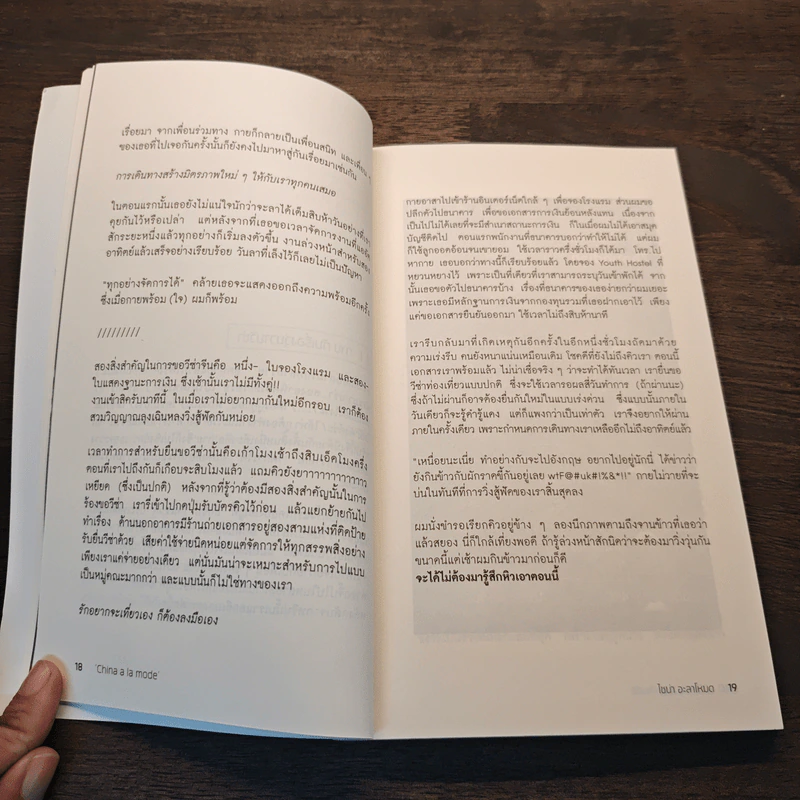 เรื่อยมา จากเพื่อนร่วมทาง กายก็กลายเป็นเพื่อนสนิท และเพื่อน ๆ
ของเธอที่ไปเจอกันครั้งนั้นก็ยังคงไปมาหาสู่กันเรื่อยมาเช่นกัน
การเดินทางสร้างมิตรภาพใหม่ ๆ ให้กับเราทุกคนเสมอ
ในตอนแรกนั้นเธอยังไม่แน่ใจนักว่าจะลาได้เต็มสิบห้าวันอย่างที่เรา
คุยกันไว้หรือเปล่า แต่หลังจากที่เธอขอเวลาจัดการงานที่แออัด
สักระยะหนึ่งแล้วทุกอย่างก็เริ่มลงตัวขึ้น งานล่วงหน้าสำหรับสอง
อาทิตย์แล้วเสร็จอย่างเรียบร้อย วันลาที่เล็งไว้ก็เลยไม่เป็นปัญหา
"ทุกอย่างจัดการได้" คล้ายเธอจะแสดงออกถึงความพร้อมอีกครั้ง
ซึ่งเมื่อกายพร้อม (ใจ) ผมก็พร้อม
/////////
สองสิ่งสำคัญในการขอวีซ่าจีนคือ หนึ่ง- ใบจองโรงแรม และสอง-
ใบแสดงฐานะการเงิน ซึ่งเช้านั้นเราไม่มีทั้งคู่!!
งานเข้าสิครับทานี้ ในเมื่อเราไม่อยากมากันใหม่อีกรอบ เราก็ต้อง
สวมวิญญาณลุงเฉินหลงวิ่งสู้ฟัดกันหน่อย
เวลาทำการสำหรับยื่นขอวีซ่านั้นคือเก้าโมงเช้าถึงสิบเอ็ดโมงครึ่ง
ตอนที่เราไปถึงกันก็เกือบจะสิบโมงแล้ว แถมคิวยังยาาาาาาาาาาว
เหยียด (ซึ่งเป็นปกติ) หลังจากที่รู้ว่าต้องมีสองสิ่งสำคัญนั้นในการ
ร้องขอวีซ่า เรารี่เข้าไปกดปุ่มรับบัตรคิวไว้ก่อน แล้วแยกย้ายกันไป
ทำเรื่อง ด้านนอกอาคารมีร้านถ่ายเอกสารอยู่สองสามแห่งที่ติดป้าย
รับยื่นวีซ่าด้วย เสียค่าใช้จ่ายนิดหน่อยแต่จัดการให้ทุกสรรพสิ่งอย่าง
เพียงเราแค่จ่ายอย่างเดียว แต่นั่นมันน่าจะเหมาะสำหรับการไปแบบ
เป็นหมู่คณะมากกว่า และแบบนั้นก็ไม่ใช่ทางของเรา
รักอยากจะเที่ยวเอง ก็ต้องลงมือเอง
18 'China a la mode'
กายอาสาไปเข้าร้านอินเตอร์เน็ตใกล้ ๆ เพื่อจองโรงแรม ส่วนผมขอ
ปลีกตัวไปธนาคาร เพื่อขอเอกสารการเงินย้อนหลังแทน เนื่องจาก
เป็นไปไม่ได้เลยที่จะมีสำเนาสถานะการเงิน ก็ในเมื่อผมไม่ได้เอาสมุด
บัญชีติดไป ตอนแรกพนักงานที่ธนาคารบอกว่าทำให้ไม่ได้ แต่ผม
ก็ใช้ลูกออดอ้อนจนเขายอม ใช้เวลาราวครึ่งชั่วโมงก็ได้มา โทร.ไป
หากาย เธอบอกว่าทางนี้ก็เรียบร้อยแล้ว โดยจอง Youth Hostel ที่
หยวนหยางไว้ เพราะเป็นที่เดียวที่เราสามารถระบุวันเข้าพักได้ จาก
นั้นเธอก็ขอตัวไปธนาคารบ้าง เรื่องที่ธนาคารของเธอง่ายกว่าผมเยอะ
เพราะเธอมีหลักฐานการเงินจากกองทุนรวมที่ฝากเอาไว้ เพียง
แค่ขอเอกสารยืนยันออกมา ใช้เวลาไม่ถึงสิบห้านาที
เรารีบกลับมาที่เกิดเหตุกันอีกครั้งในอีกหนึ่งชั่วโมงถัดมาด้วย
ความเร่งรีบ คนยังหนาแน่นเหมือนเดิม โชคดีที่ยังไม่ถึงคิวเรา ตอนนี้
เอกสารเราพร้อมแล้ว ไม่น่าเชื่อจริง ๆ ว่าจะทำได้ทันเวลา เรายื่นขอ
วีซ่าท่องเที่ยวแบบปกติ ซึ่งจะใช้เวลารอผลสี่วันทำการ (ถ้าผ่านนะ)
ซึ่งถ้าไม่ผ่านก็อาจต้องยื่นกันใหม่ในแบบเร่งด่วน ซึ่งแบบนั้นภายใน
วันเดียวก็จะรู้ดำรู้แดง แต่ก็แพงกว่าเป็นเท่าตัว เราจึงอยากให้ผ่าน
ภายในครั้งเดียว เพราะกำหนดการเดินทางเราเหลืออีกไม่ถึงอาทิตย์แล้ว
"เหนื่อยนะเนี่ย ทำอย่างกับจะไปอังกฤษ อยากไปอยู่นักนี่ ได้ข่าวว่า
ยังกินข้าวกับผักราดขี้กันอยู่เลย wtF@#uk#!%&*!!" กายไม่วายที่จะ
บ่นในทันทีที่การวิ่งสู้ฟัดของเราสิ้นสุดลง
ผมนั่งขำรอเรียกคิวอยู่ข้าง ๆ ลองนึกภาพตามถึงจานข้าวที่เธอว่า
แล้วสยอง นี่ก็ใกล้เที่ยงพอดี ถ้ารู้ล่วงหน้าสักนิดว่าจะต้องมาวิ่งวุ่นกัน
ขนาดนี้แต่เช้าผมกินข้าวมาก่อนก็ดี
จะได้ไม่ต้องมารู้สึกหิวเอาตอนนี้
ไชน่า อะลาโหมด 19